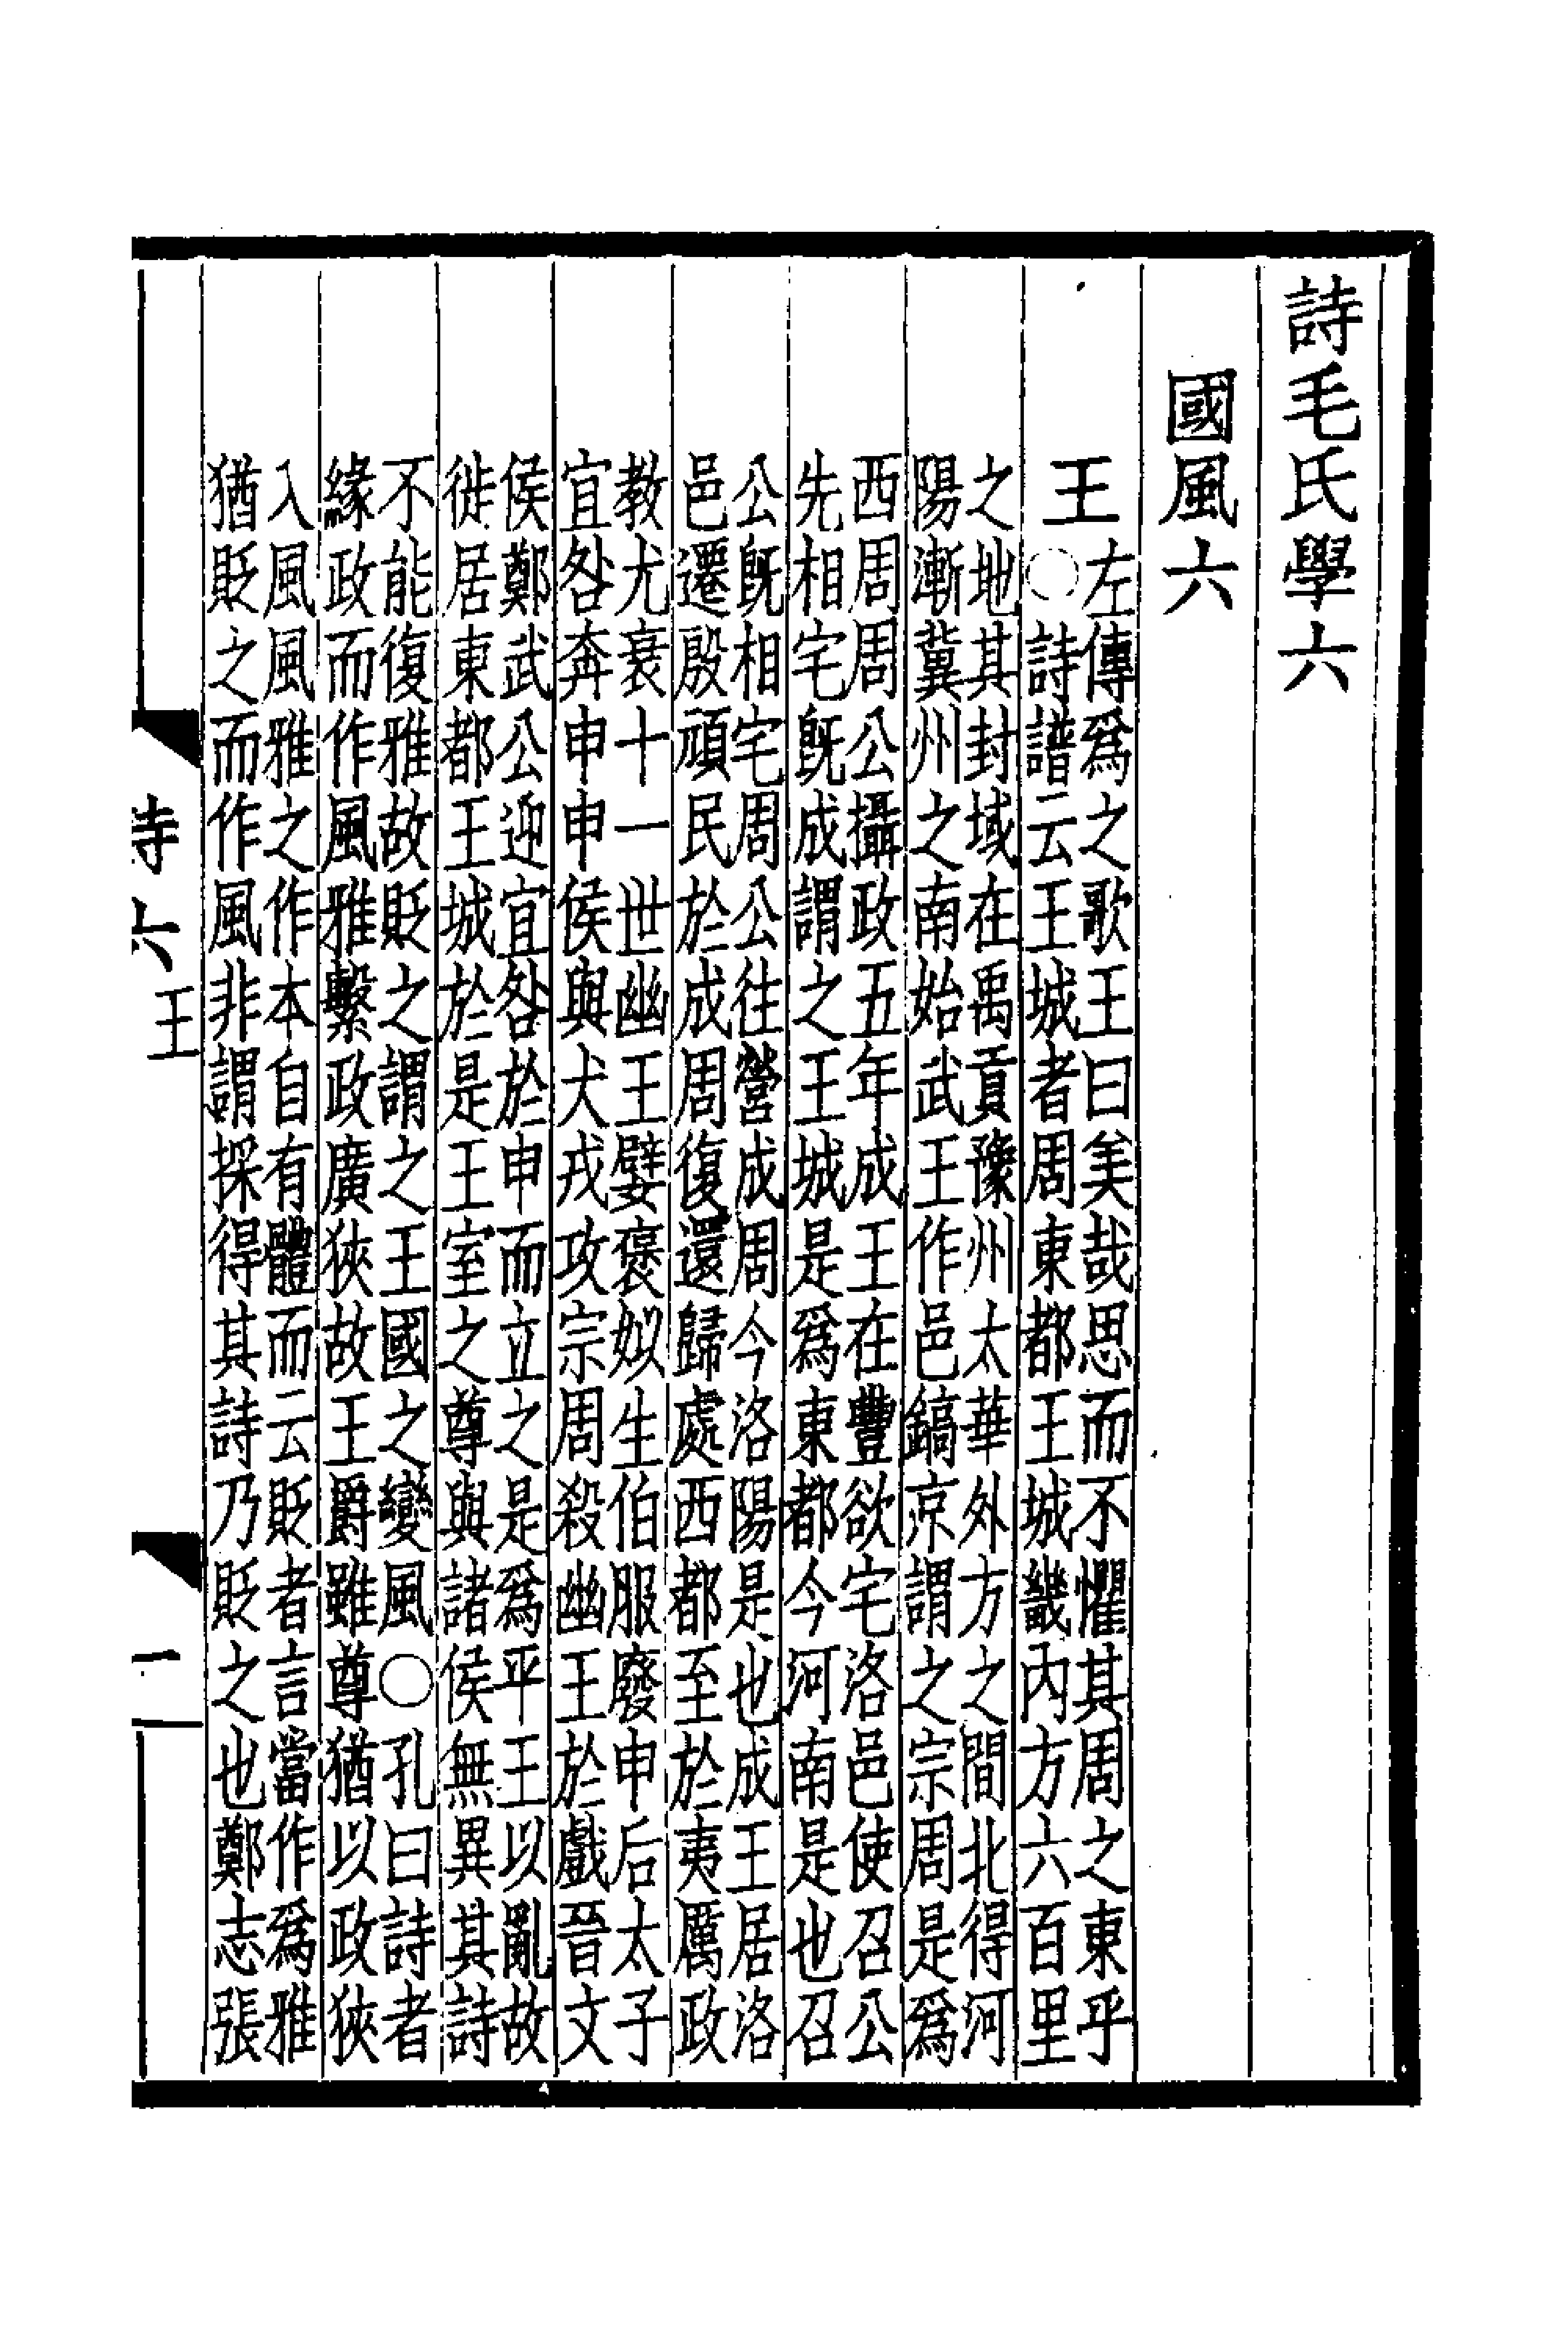 詩毛氏學六
國風六
王
左傳爲之歌王曰美哉思而不懼其周之東乎
○詩譜云王城者周東都王城畿內方六百里
之地其封域在禹貢豫州太華外方之間北得河
陽漸冀州之南始武王作邑鎬京謂之宗周是爲
西周周公攝政五年成王在豐欲宅洛邑使召公
先相宅旣成謂之王城是爲東都今河南是也召
公旣相宅周公往營成周今洛陽是也成王居洛
邑遷殷頑民於成周復還歸處西都至於夷厲政
教尤衰十一世幽王嬖褒姒生伯服廢申后太子
宜咎奔申申侯與犬戎攻宗周殺幽王於戲晉文
侯鄭武公迎宜咎於申而立之是爲平王以亂故
徙居東都王城於是王室之尊與諸侯無異其詩
不能復雅故貶之謂之王國之變風○孔曰詩者
緣政而作風雅繫政廣狹故王爵雖尊猶以政狹
入風風雅之作本自有體而云貶者言當作爲雅
猶貶之而作風非謂採得其詩乃貶之也鄭志張
詩六 王 一